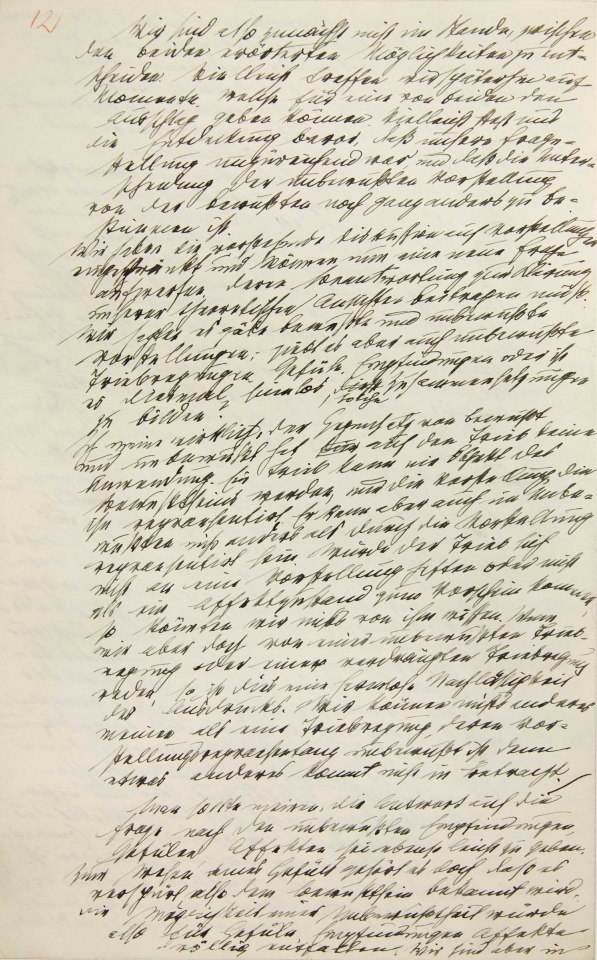 12)
Wir sind also zunächst nicht im Stande, zwischen
den beiden erörterten Möglichkeiten zu ent-
scheiden. Vielleicht treffen wir späterhin auf
Momente, welche für eine von beiden den
Ausschlag geben können. Vielleicht steht uns
die Entdeckung bevor, daß unsere Frage-
stellung unzureichend war und daß die Unter-
scheidung der unbewußten Vorstellung
von der bewußten noch ganz anders zu be-
stimmen ist.
Wir haben die vorstehende Diskussion auf Vorstellungen
eingeschränkt und können nun eine neue Frage
aufwerfen, deren Beantwortung zur Klärung
unserer theoretischen Ansichten beitragen muß.
Wir sagten, es gäbe bewußte und unbewußte
Vorstellungen; giebt es aber auch unbewußte
Triebregungen, Gefühle, Empfindungen oder ist
es diesmal sinnlos, solche Zusammensetzungen
zu bilden?
Ich meine wirklich, der Gegensatz von bewußt
und unbewußt hat auf den Trieb keine
Anwendung. Ein Trieb kann nie Objekt des
Bewußtseins werden, nur die Vorstellung, die
ihn repraesentirt. Er kann aber auch im Unbe-
wußten nicht anders als durch die Vorstellung
repraesentirt sein. Würde der Trieb sich
nicht an eine Vorstellung heften oder nicht
als ein Affektzustand zum Vorschein kommen,
so könnten wir nichts von ihm wissen. Wenn
wir aber doch von einer unbewußten Trieb-
regung oder einer verdrängten Triebregung
reden, so ist dies eine harmlose Nachlässigkeit
des Ausdrucks. Wir können nichts anderes
meinen als eine Triebregung, deren Vor-
stellungsrepraesentanz unbewußt ist, denn
etwas anderes kommt nicht in Betracht.
Man sollte meinen, die Antwort auf die
Frage nach den unbewußten Empfindungen,
Gefühlen, Affekten sei ebenso leicht zu geben.
Zum Wesen eines Gefühls gehört es doch, daß es
verspürt, also dem Bewußtsein bekannt wird.
Die Möglichkeit einer Unbewußtheit würde
also für Gefühle, Empfindungen, Affekte
völlig entfallen. Wir sind aber in